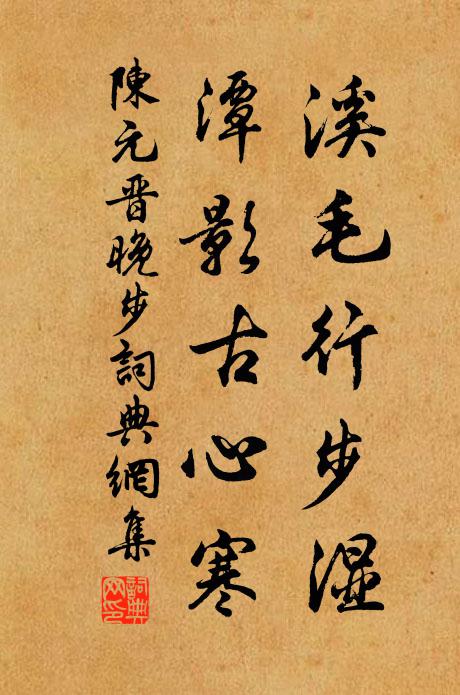 溪毛行步湿
潭影古心寒
陳元晋晚步詞典網集
詞典网印